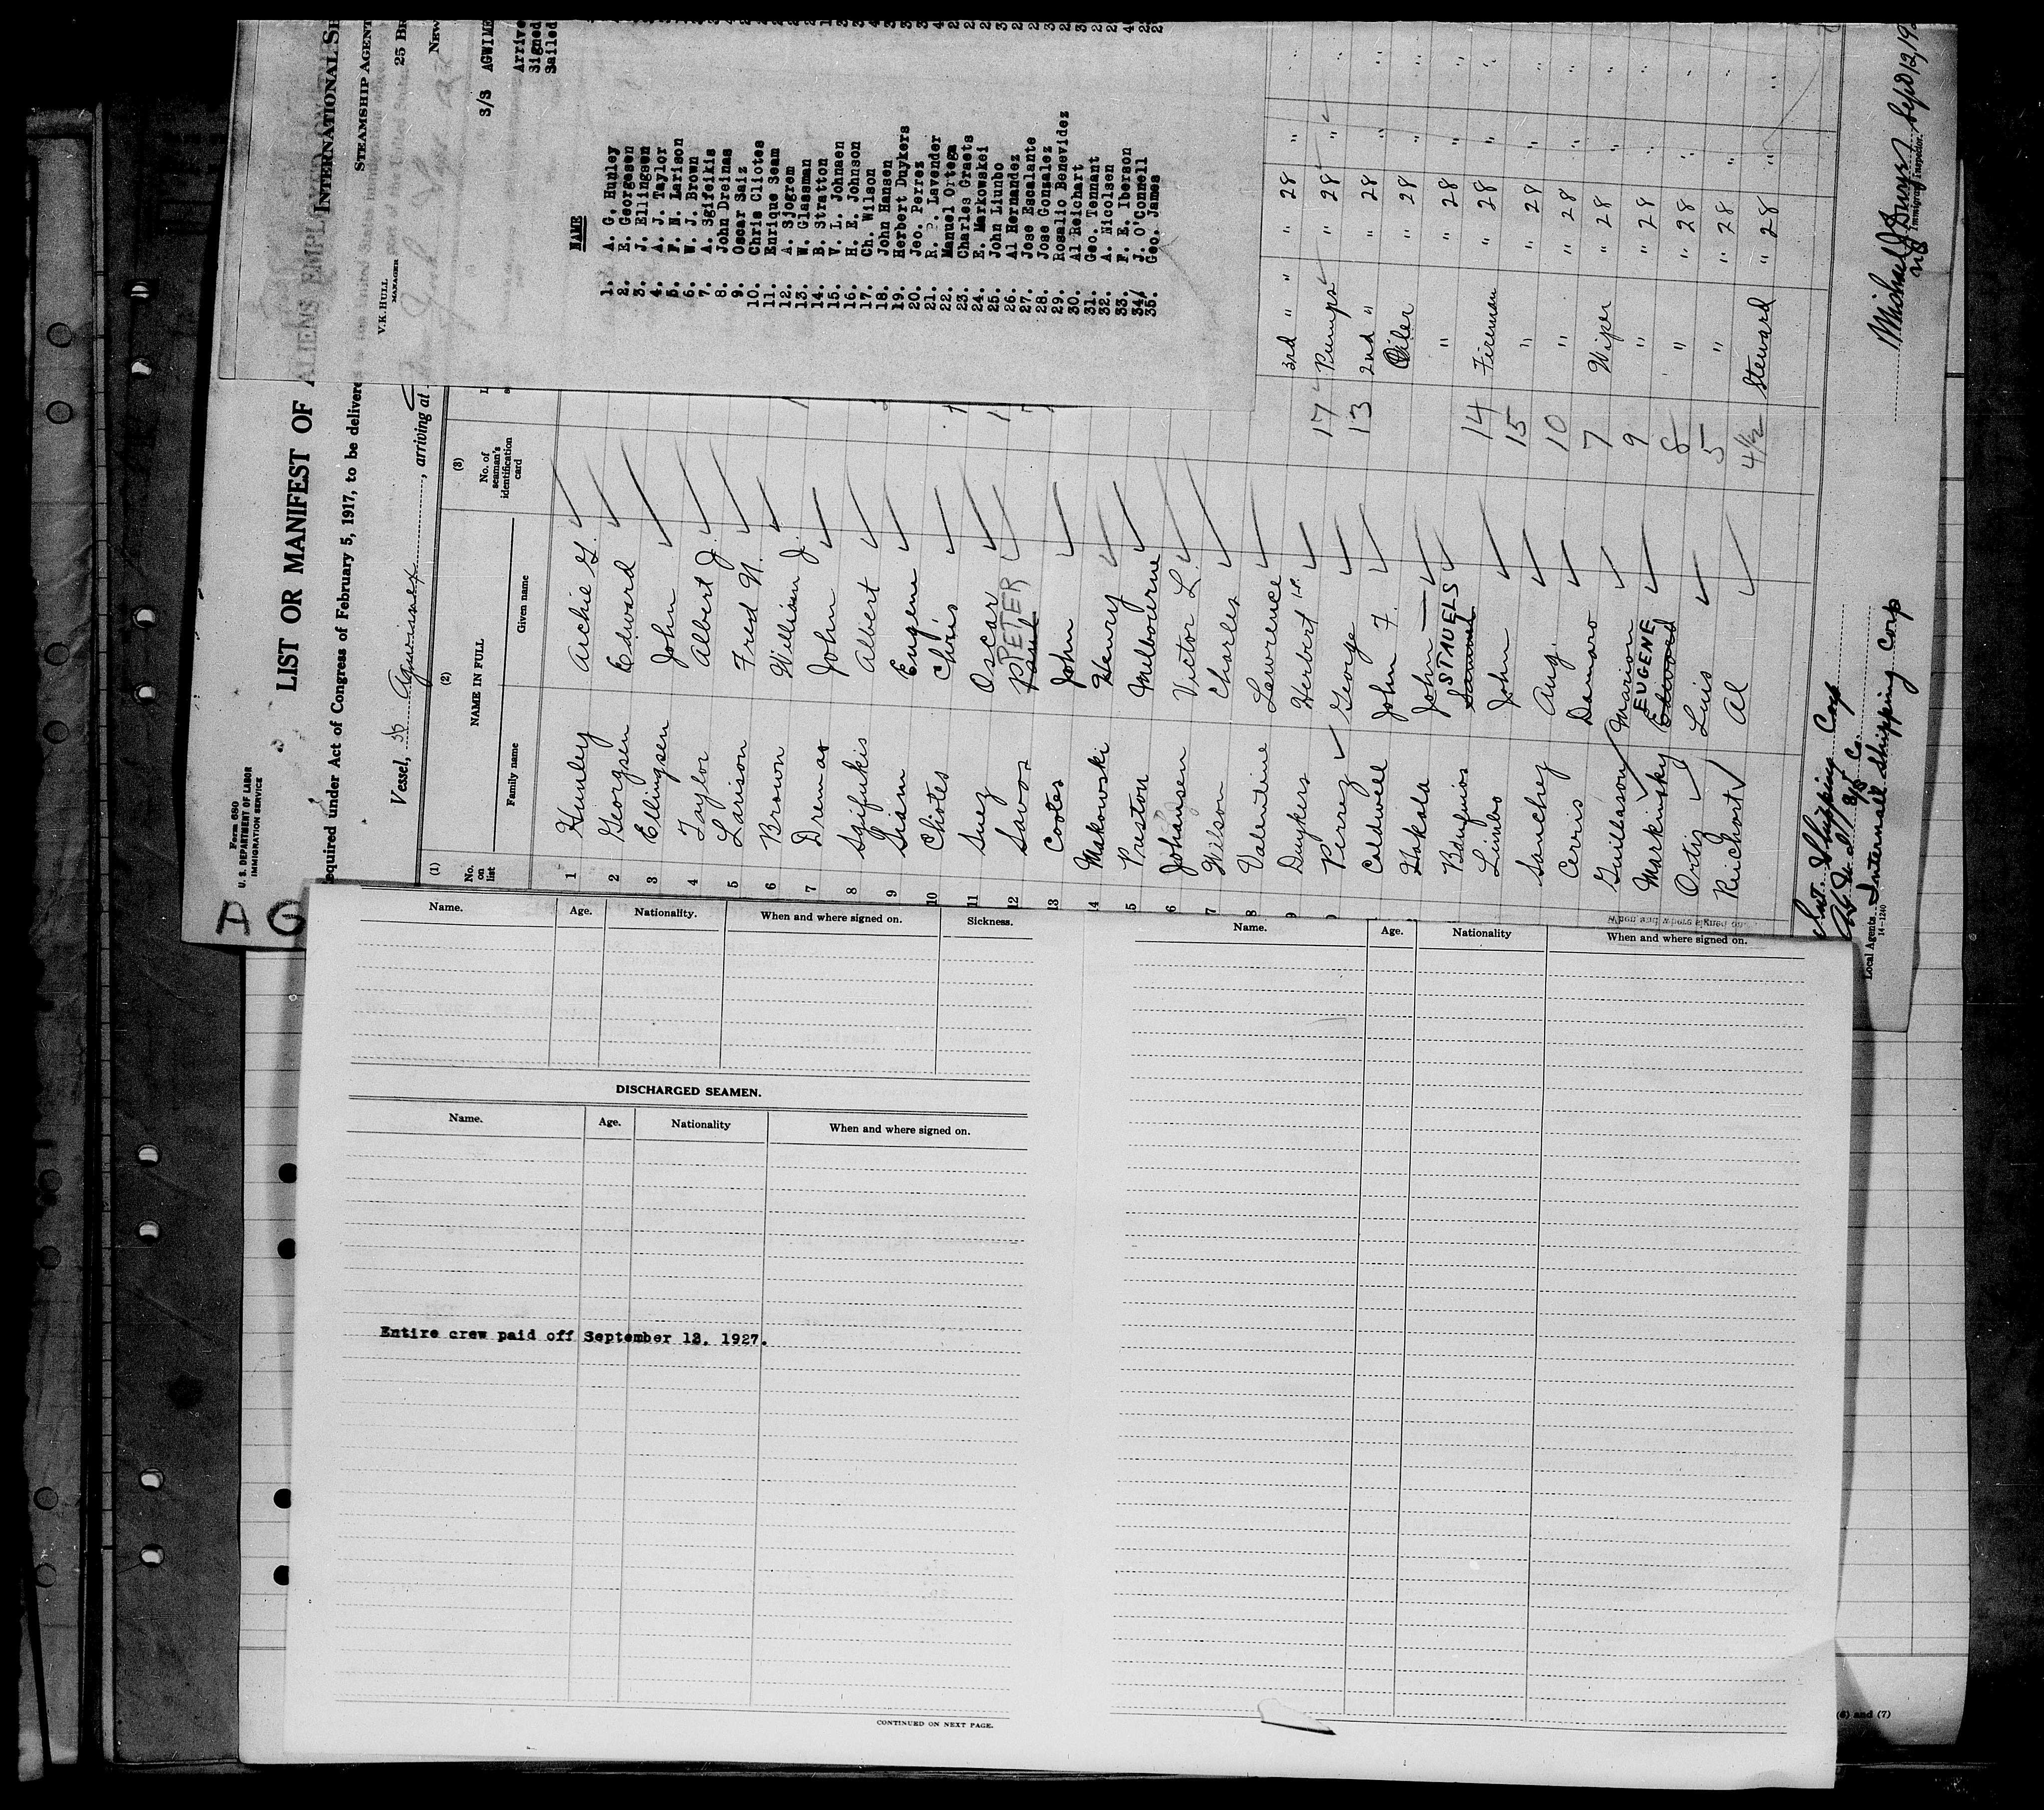 Form 680
U. S. DEPARTMENT OF LABOR
IMMIGRATION SERVICE
A G
LIST OR MANIFEST OF ALIENS EMPL
equired under Act of Congress of February 5, 1917, to be delivere
Vessel, SS Agwismex, arriving at
(1) (2) (3)
No. on list
NAME IN FULL
Family name Given name
No. of seaman's identification card
1 Hunley Archie G.
2 Georgsen Edward
3 Ellingsen John
4 Taylor Albert J.
5 Larison Fred N.
6 Brown William J.
7 Dremas John
8 Sgifukis Albert
9 Siam Eugen
10 Cliotes Chris
11 Suez Oscar
12 Savos Paul PETER
13 Cootes John
14 Makowski Henry
15 Preston Milbourne
6 Johansen Victor L.
7 Wilson Charles
8 Valentine Lawrence
9 Duykers Herbert
Perrez George
Caldwell John F.
Hakala John
Samuel
Limbo John
Sanchez Aug.
Cerris Damaro
Marion
Markinsky Edward EUGENE
Ortiz Luis
Richart Al
3rd " " " 28 " "
17 Pumps " 28 " "
13 2nd " " 28 " "
Oiler " 28 " "
" " 28 " "
14 Fireman " 28 " "
15 " " 28 " "
10 " " 28 " "
7 Wiper " 28 " "
9 " " 28 " "
8 " " 28 " "
5 " " 28 " "
4 1/2 Steward " 28 " "
Int. Shipping Corp
Local Agents Internatl Shipping Corp
14-1240
Immigrant Inspector.
INTERNATIONAL SE
STEAMSHIP AGENT
25 BR
NEW
V. K. HULL
MANAGER
3/S AGWISME
Arrive
Signed
Sailed
NAME
1. A. G. Hunley
2. E. Georgesen
3. J. Ellingsen
4. A. J. Taylor
5. F. N. Larison
6. W. J. Brown
7. A. Sgifeikis
8. John Dreimas
9. Oscar Saiz
10. Chris Cliotes
11. Enrique Seam
12. A. Sjogrem
13. W. Glassman
14. B. Stratton
15. V. L. Johnsen
16. H. E. Johnson
17. Ch. Wilson
18. John Hansen
19. Herbert Duykers
20. Jeo. Perrez
21. R. P. Lavender
22. Manuel Ortega
23. Charles Graets
24. E. Markowskei
25. John Liunbo
26. Al Hernandez
27. Jose Escalante
28. Jose Gonzalez
29. Rosalio Benevidez
30. Al Reichart
31. Geo. Tennant
32. A. Nicolsen
33. F. E. Iberson
34. J. O'Connell
35. Geo. James
Name. Age. Nationality. When and where signed on. Sickness.
DISCHARGED SEAMEN.
Name. Age. Nationality When and where signed on.
Entire crew paid off September 13, 1927.
CONTINUED ON NEXT PAGE.
Name. Age. Nationality When and where signed on.
(6) and (7)